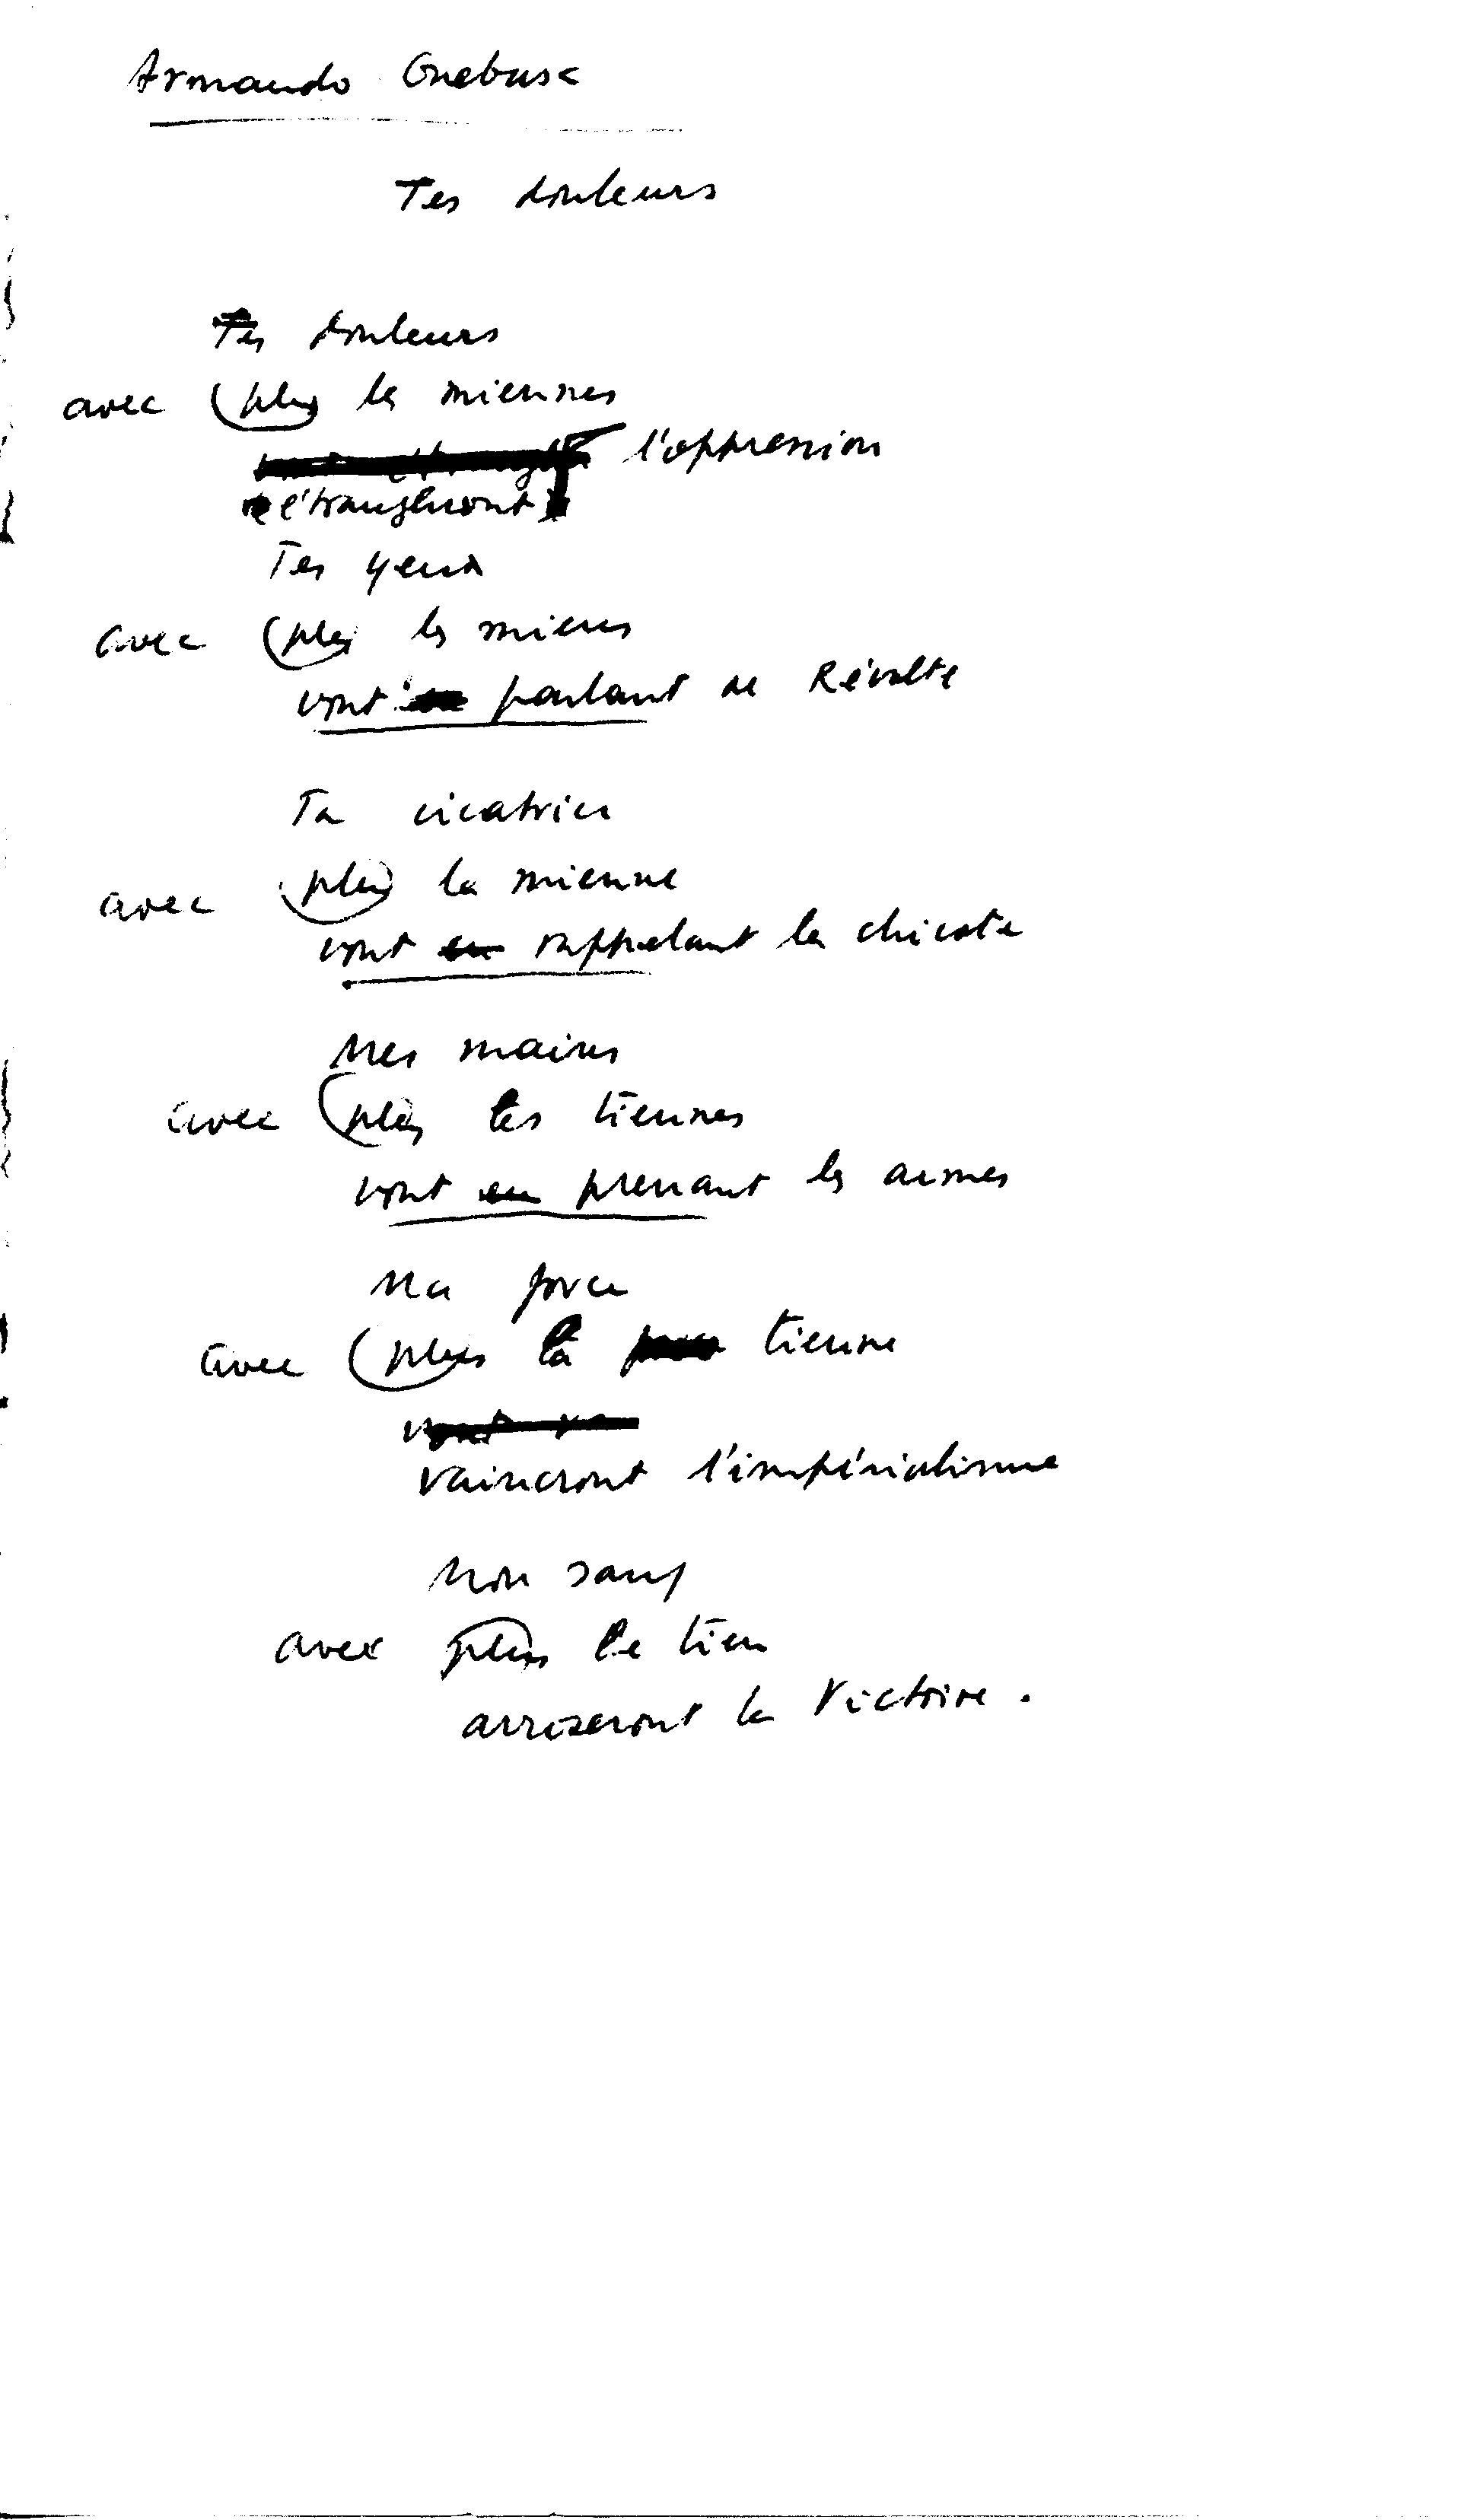 Armando Guebuse
Tes douleurs
Tes douleurs
avec (plus les miennes
l'oppression
étrangleront
Tes yeux
avec (plus les miens
vont en parlant de Révolte
Ta cicatrice
avec (plus) la mienne
vont en rappelant la chicote
Mes mains
avec (plus les tiennes
vont en prenant les armes
Ma force
avec (plus la tienne
vont
vaincront l'impérialisme
Mon sang
avec plus le tien
arroseront la Victoire.